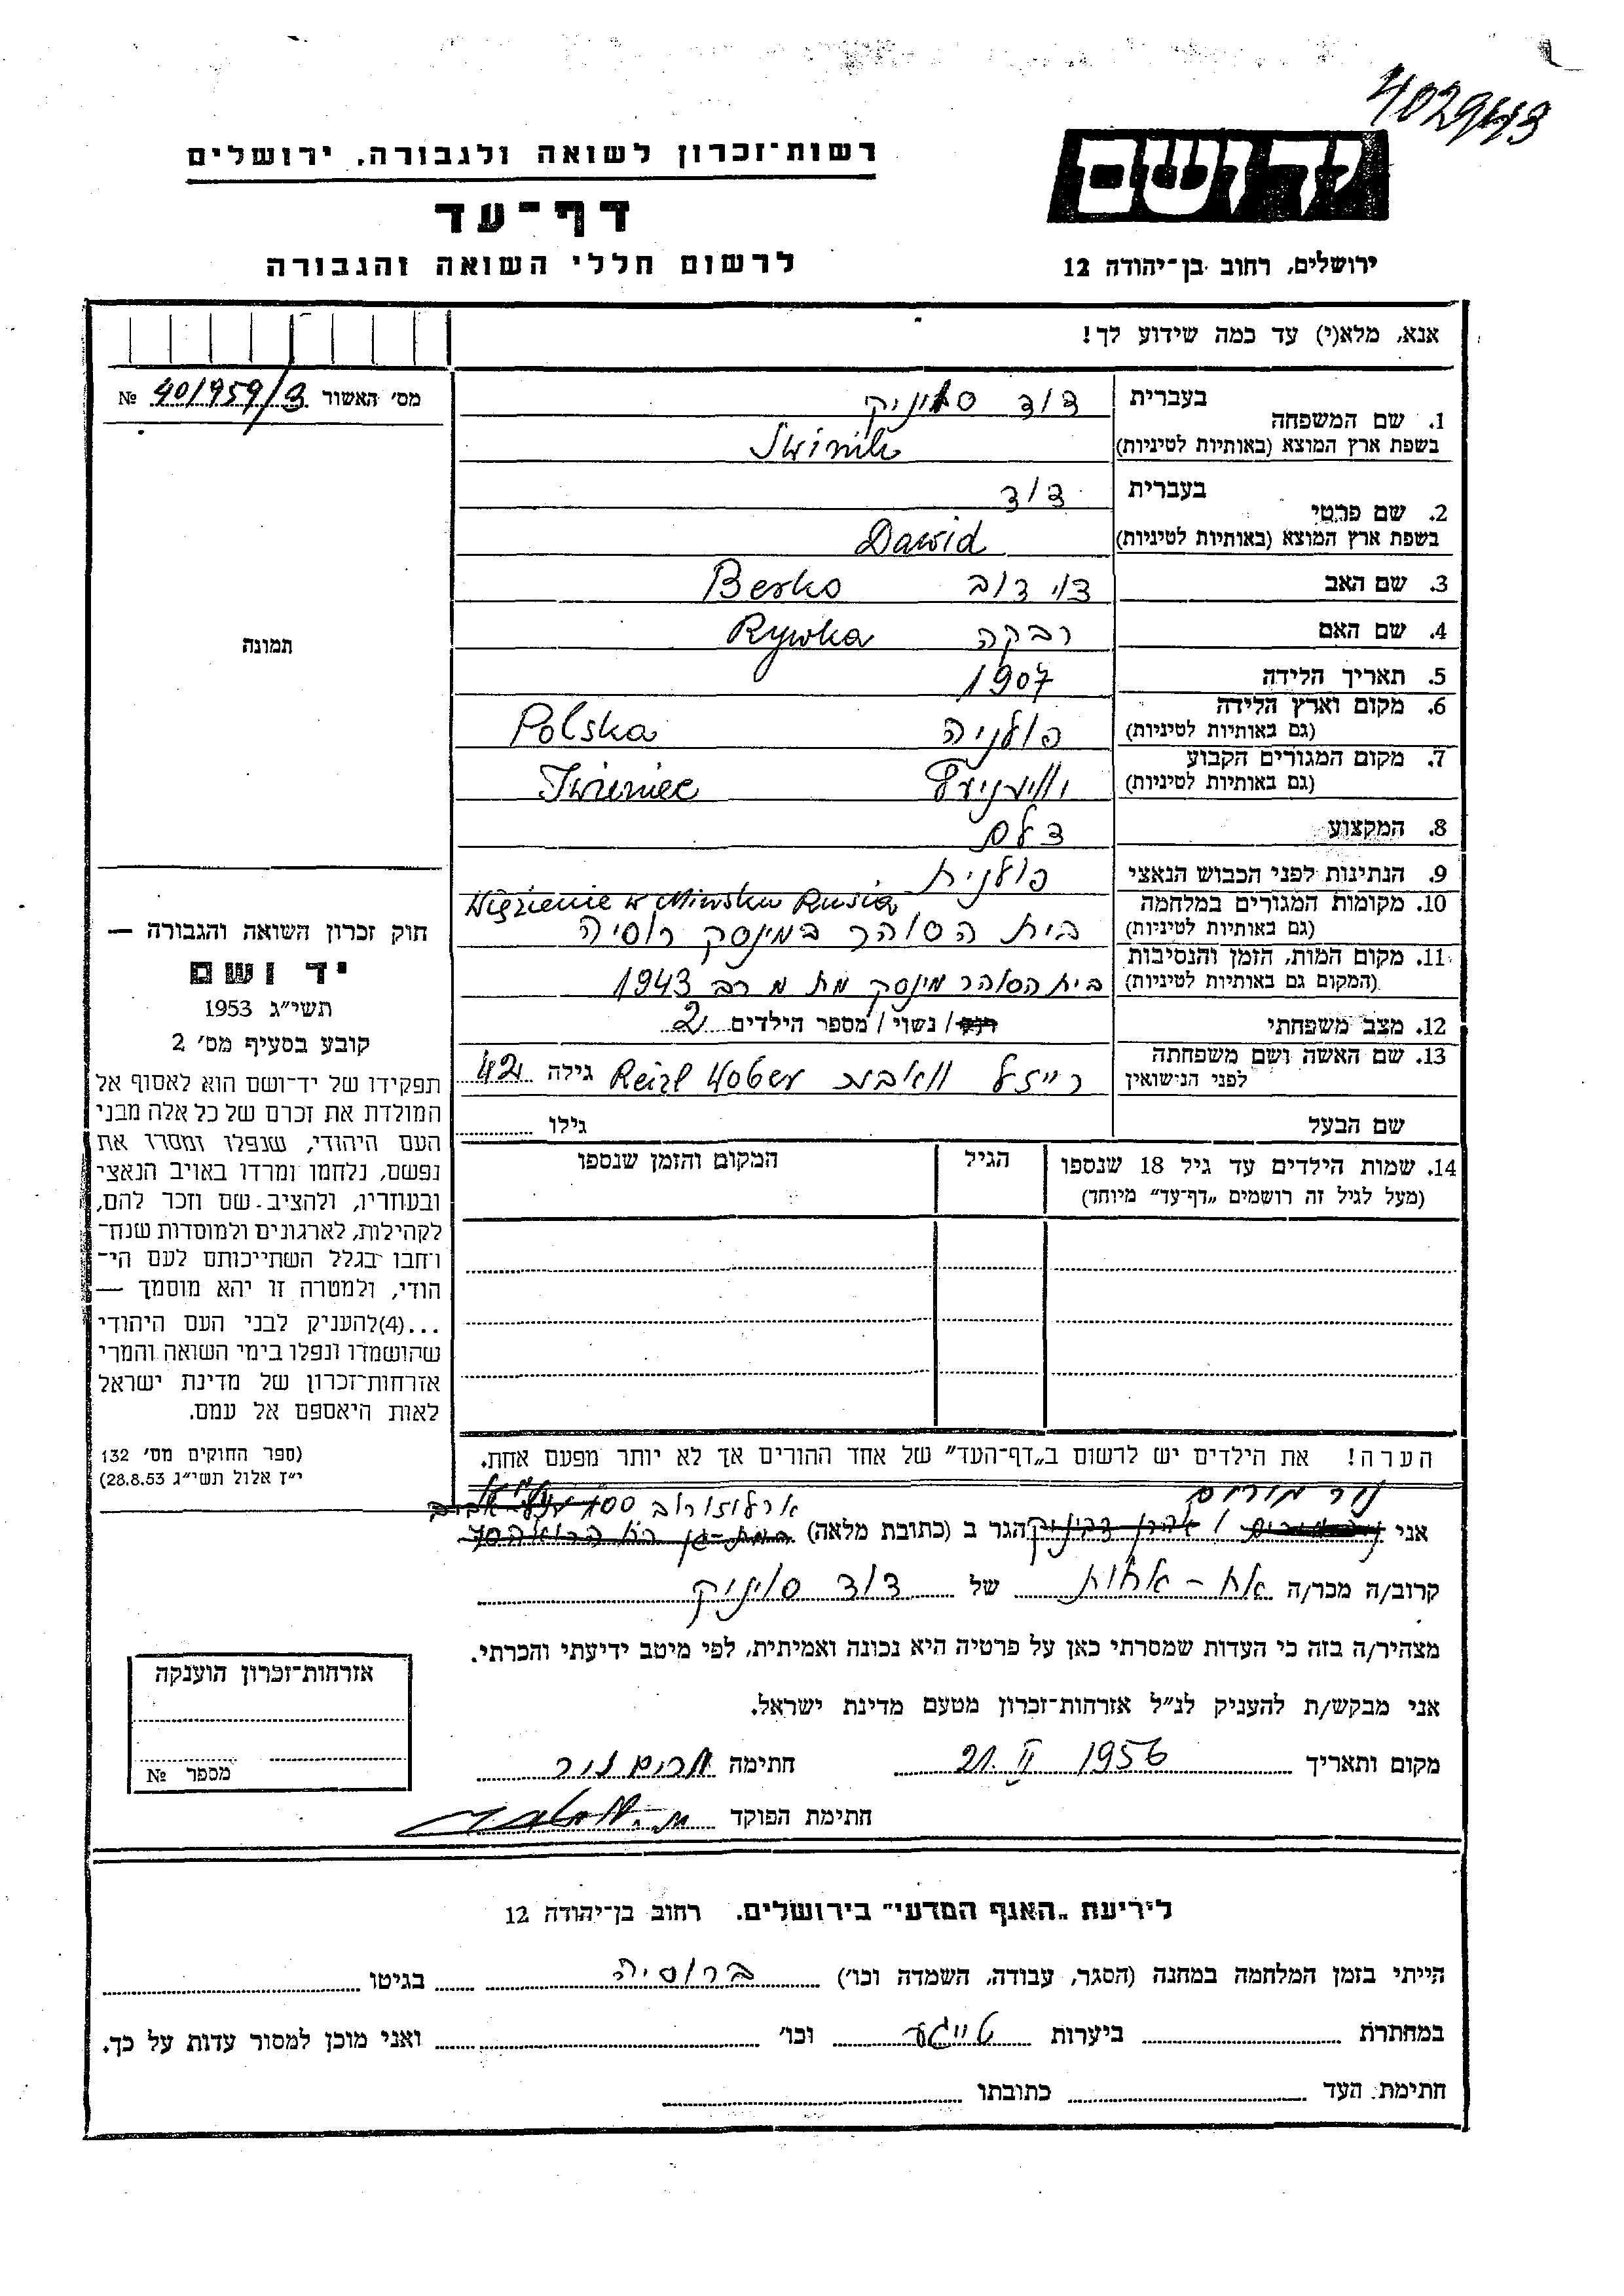 402943
יד ושם
ירושלים, רחוב בן־יהודה 12
רשות־זכרון לשואה ולגבורה, ירושלים
דף־עד
לרשום חללי השואה והגבורה
אנא, מלא(י) עד כמה שידוע לך!
מס' האשור 401959/3 №
תמונה
חוק זכרון השואה והגבורה —
יד ושם
תשי״ג 1953
קובע בסעיף מס' 2
תפקידו של יד־ושם הוא לאסוף אל
המולדת את זכרם של כל אלה מבני
העם היהודי, שנפלו ומסרו את
נפשם, נלחמו ומרדו באויב הנאצי
ובעוזריו, ולהציב שם וזכר להם,
לקהילות, לארגונים ולמוסדות שנח־
רחבו בגלל השתייכותם לעם הי־
הודי, ולמטרה זו יהא מוסמך —
...(4)להעניק לבני העם היהודי
שהושמדו ונפלו בימי השואה והמרי
אזרחות־זכרון של מדינת ישראל
לאות היאספם אל עמם.
(ספר החוקים מס' 132
י״ז אלול תשי״ג 28.8.53)
1. שם המשפחה בעברית דוד סוויניק
בשפת ארץ המוצא (באותיות לטיניות) Swinik
2. שם פרטי בעברית דוד
בשפת ארץ המוצא (באותיות לטיניות) Dawid
3. שם האב דוב Berko
4. שם האם רבקה Rywka
5. תאריך הלידה 1907
6. מקום וארץ הלידה פולניה Polska
(גם באותיות לטיניות)
7. מקום המגורים הקבוע Iwieniec
(גם באותיות לטיניות)
8. המקצוע
9. הנתינות לפני הכבוש הנאצי פולנית
10. מקומות המגורים במלחמה Więzienie w Minsku Rusia
(גם באותיות לטיניות) בית הסוהר במינסק רוסיה
11. מקום המות, הזמן והנסיבות
(המקום גם באותיות לטיניות) בית הסוהר מינסק מת 1943
12. מצב משפחתי רווק / נשוי / מספר הילדים 2
13. שם האשה ושם משפחתה
לפני הנישואין רייזל Reizl גילה 42
שם הבעל גילו
14. שמות הילדים עד גיל 18 שנספו הגיל המקום והזמן שנספו
(מעל לגיל זה רושמים „דף־עד״ מיוחד)
הערה! את הילדים יש לרשום ב„דף־העד״ של אחד ההורים אך לא יותר מפעם אחת.
נור מרים
ארלוזורוב 100 תל אביב
אני הגר ב (כתובת מלאה)
קרוב/ה מכר/ה אח - אחות של דוד סויניק
מצהיר/ה בזה כי העדות שמסרתי כאן על פרטיה היא נכונה ואמיתית, לפי מיטב ידיעתי והכרתי.
אני מבקש/ת להעניק לנ״ל אזרחות־זכרון מטעם מדינת ישראל.
מקום ותאריך 21. II 1956 חתימה מרים נור
חתימת הפוקד
אזרחות־זכרון הוענקה
מספר №
לידיעת „האגף המדעי״ בירושלים. רחוב בן־יהודה 12
הייתי בזמן המלחמה במחנה (הסגר, עבודה, השמדה וכו') ברוסיה בגיטו
במחתרת ביערות טייגע וכו' ואני מוכן למסור עדות על כך.
חתימת העד כתובתו